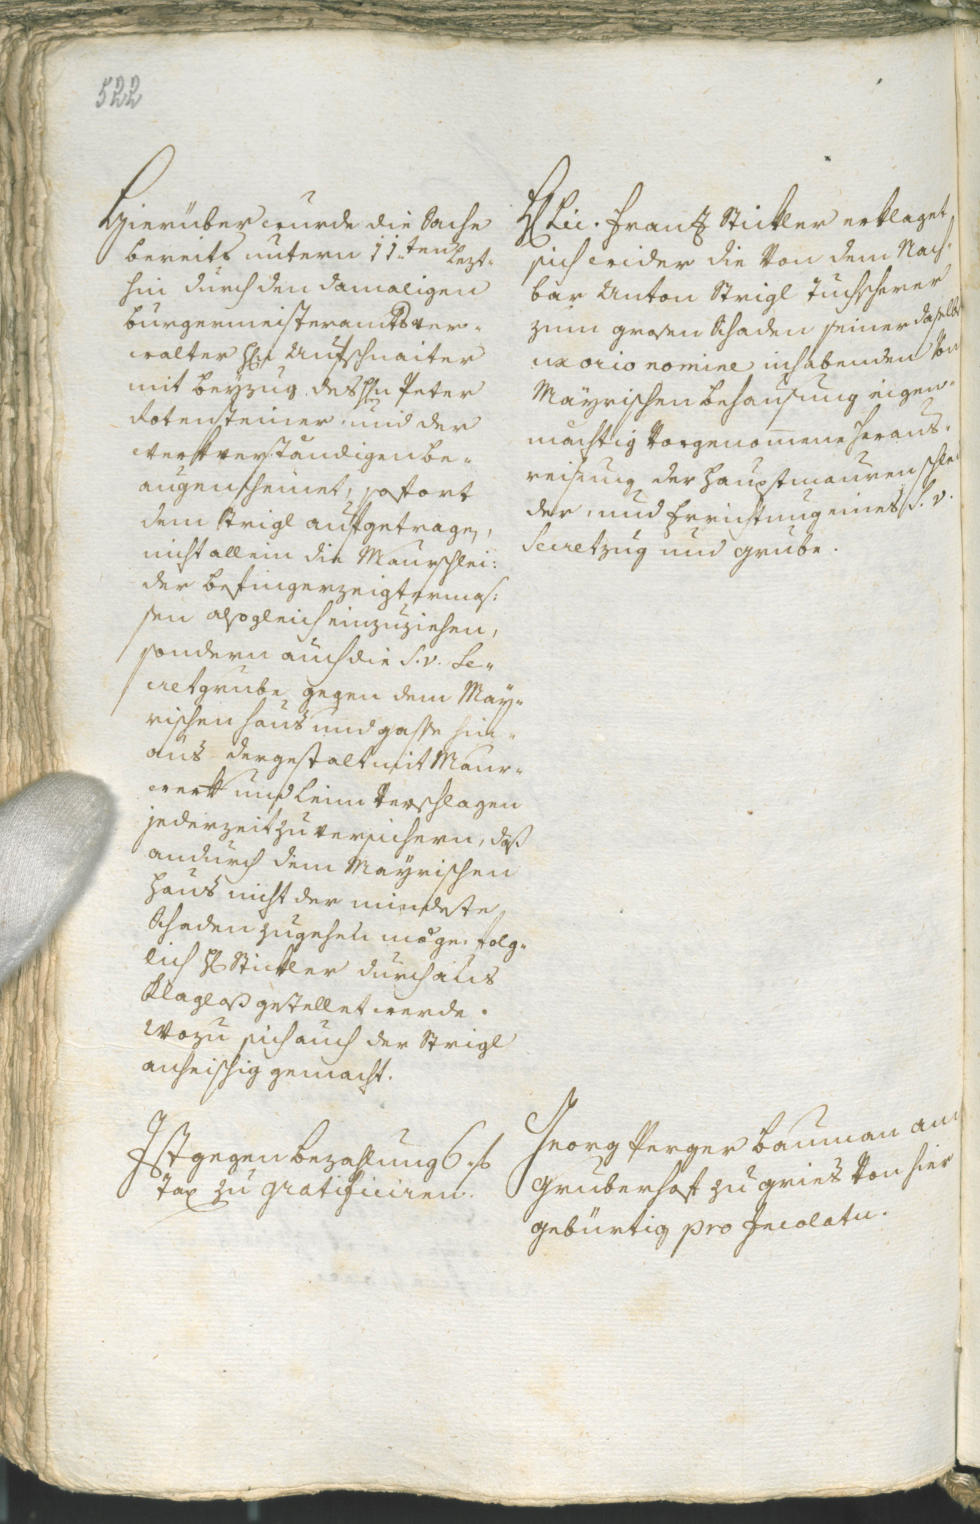 522
Hierüber wurde die Sache
bereits untern 11.ten lezt-
hin durch den damaligen
burgermeisteramtsver-
walter Hn Aufschnaiter
mit beyzug des Hn Peter
Rotensteiner und der
werkverständigen be-
augenscheinet, sofort
dem Strigl aufgetragen,
nicht allein die Maurschlei-
der befingerzeigtermas-
sen alsogleich einzuziehen,
sondern auch die S.v. Se-
cretgrube gegen dem May-
rischen haus und gasse hin-
aus dergestalt mit Maur-
werk und Leim verschlagen
jederzeit zu versichern, daß
andurch dem Mayrischen
haus nicht der mindeste
Schaden zugehen möge, folg-
lich H Stickler durchaus
klaglos gestellet werde.
Wozu sich auch der Strigl
anheischig gemacht.
H Lic. Frantz Stickler erklaget
sich wider die von dem Nach-
bar Anton Strigl Tuchscherer
zum grosen Schaden seiner daselbst
uxorio nomine inhabenden von
Mayrischen behausung eigen-
mächtig vorgenommene heraus-
reisung der hauptmauren schlei
der, und Errichtung eines S.v.
Secretzug und grube.
Ist gegen bezahlung 6 f
Tax zu gratificiren.
Georg Perger bauman am
gruberhof zu gries von hier
gebürtig pro Incolatu.